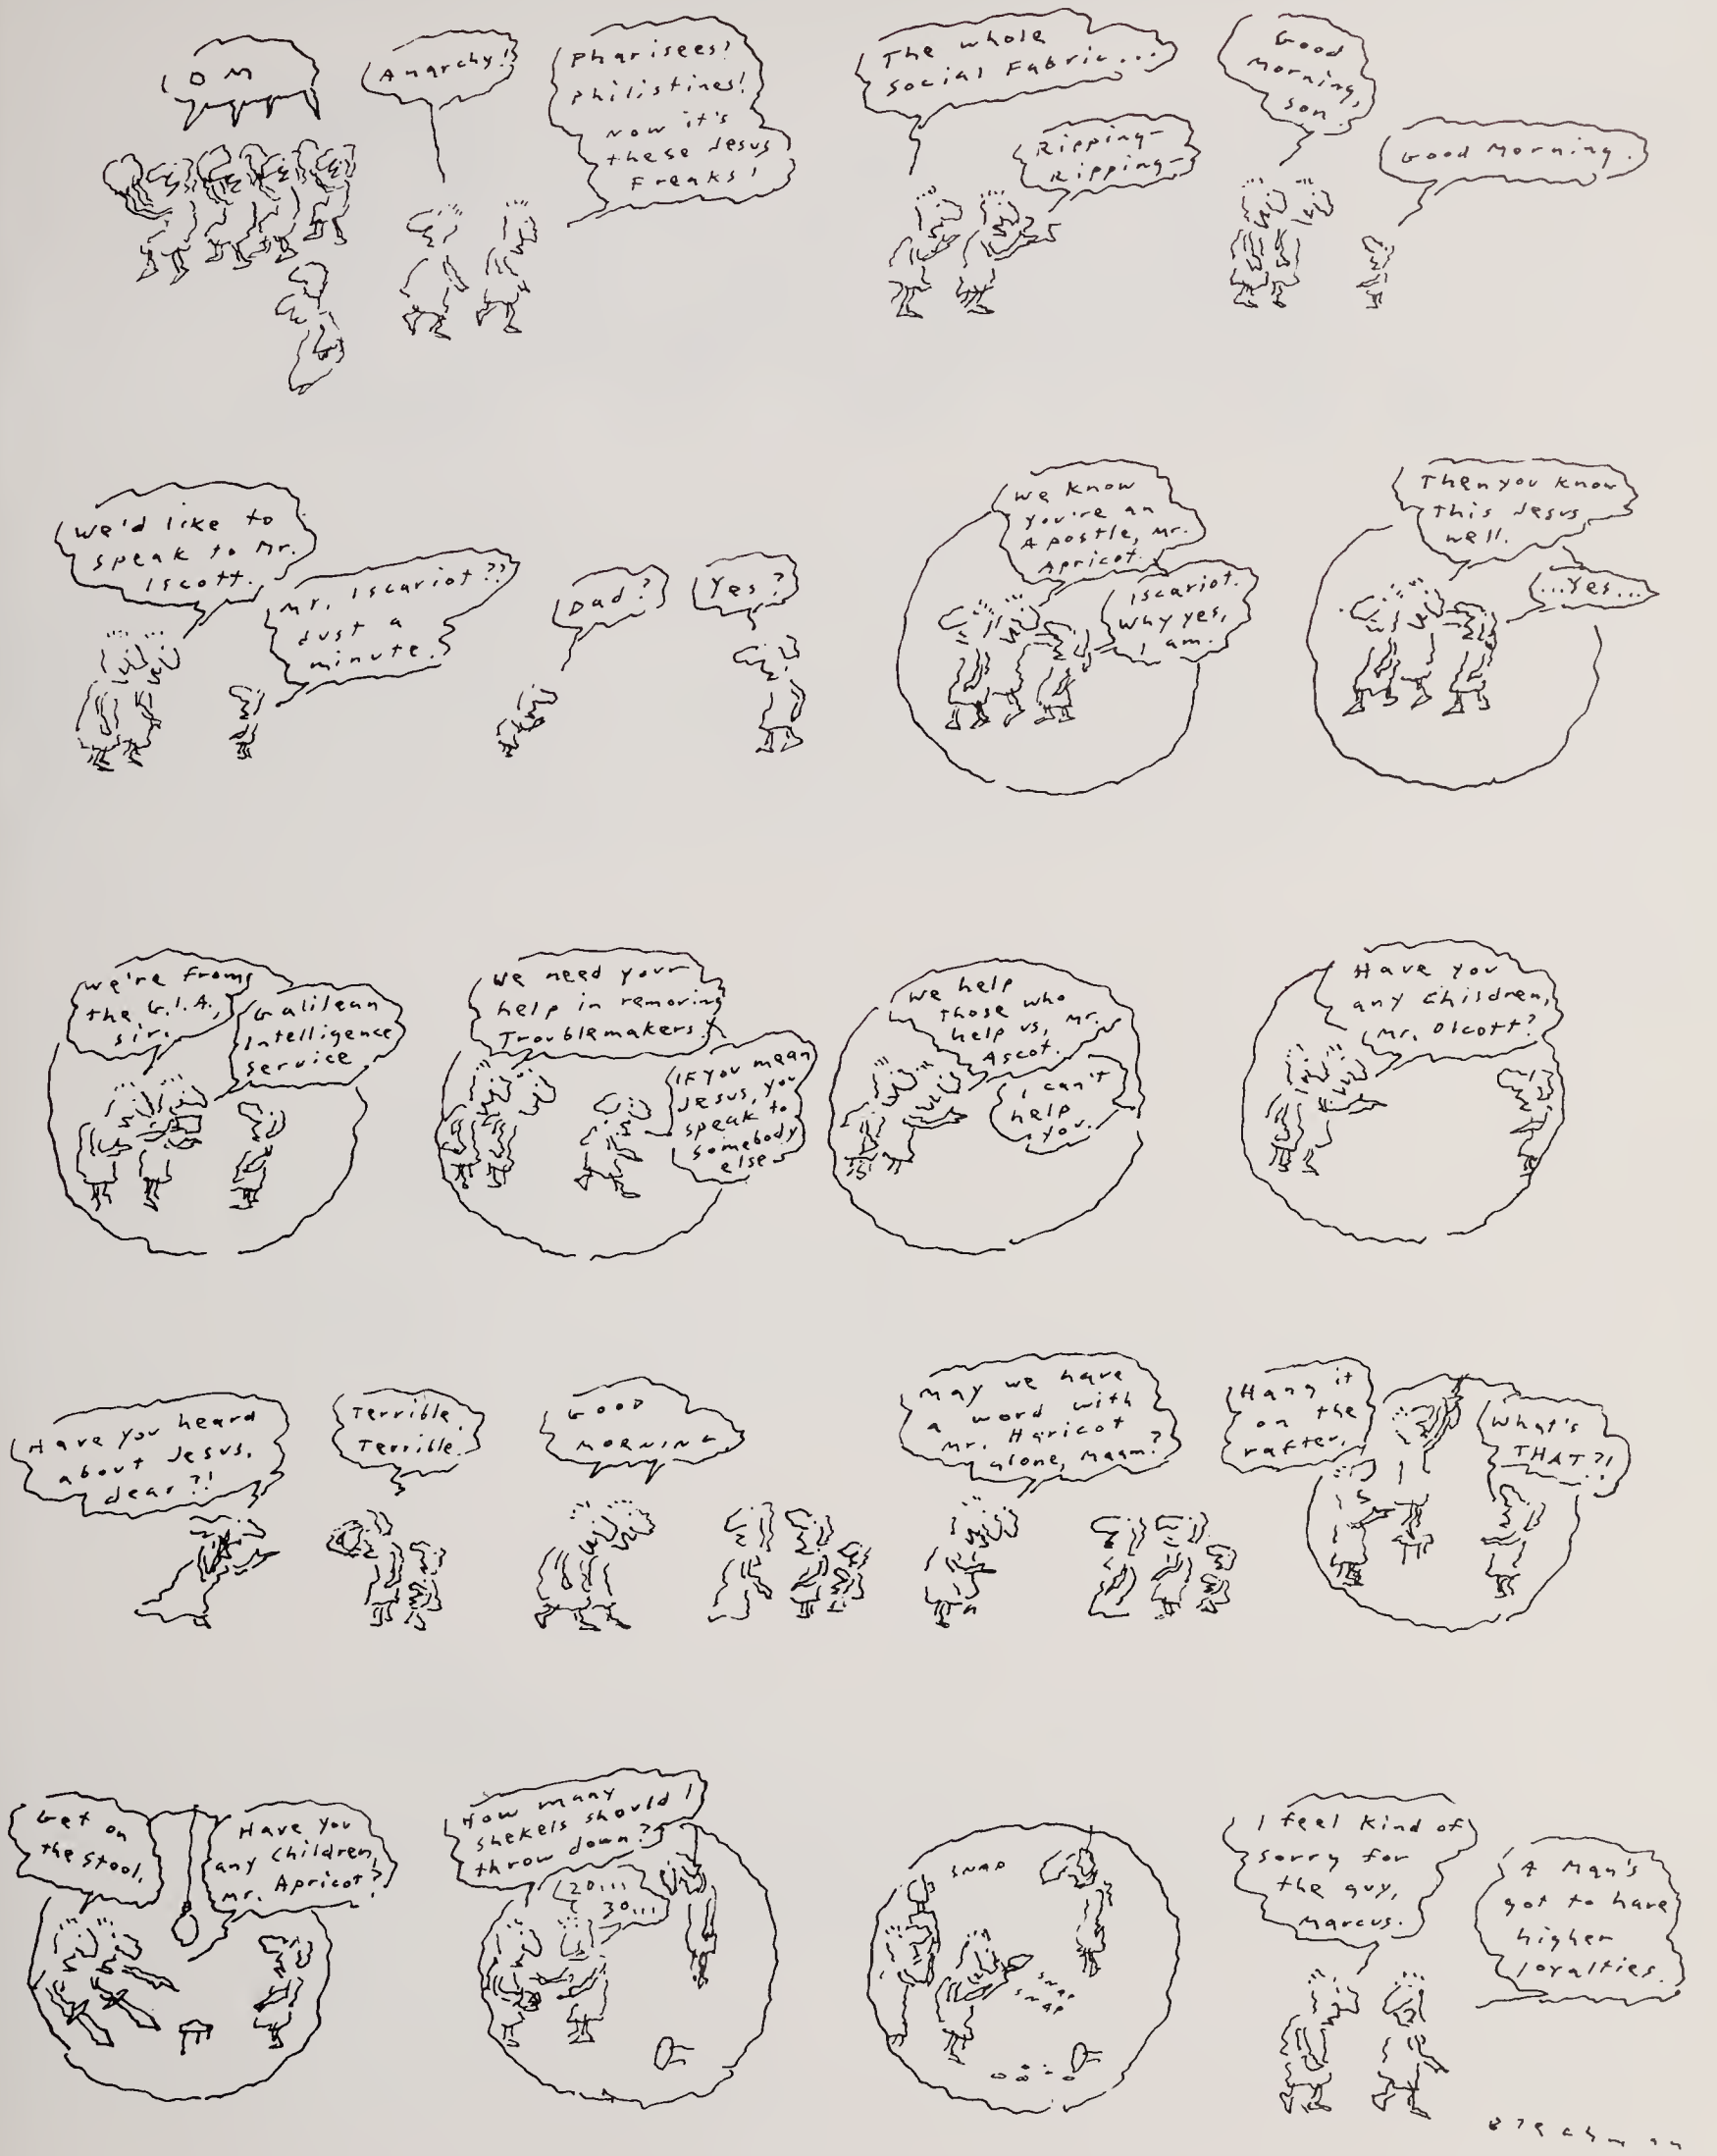 OM
Anarchy!
Pharisees!
Philistines!
Now it's
these Jesus
Freaks!
The whole
Social Fabric...
Ripping-
Ripping-
Good
Morning,
Son.
Good Morning.
We'd like to
speak to Mr.
Iscott.
Mr. Iscariot??
Just a
minute.
Dad?
Yes?
We know
you're an
Apostle, Mr.
Apricot.
Iscariot.
Why yes,
I am.
Then you know
this Jesus
well.
...Yes...
We're from
the G.I.A.,
sir.
Galilean
Intelligence
Service
We need your
help in removing
Troublemakers.
If you mean
Jesus, you
speak to
somebody
else
We help
those who
help us, Mr.
Ascot.
I can't
help
you.
Have you
any children,
Mr. Olcott?
Have you heard
about Jesus,
dear?!
Terrible.
Terrible.
GOOD
MORNING
May we have
a word with
Mr. Haricot
alone, Maam?
Hang it
on the
rafter.
What's
THAT?!
Get on
the stool.
Have you
any children,
Mr. Apricot?
How many
shekels should I
throw down?
20...
30...
SNAP
SNAP
SNAP
I feel kind of
sorry for
the guy,
Marcus.
A Man's
got to have
higher
loyalties.
Blechman